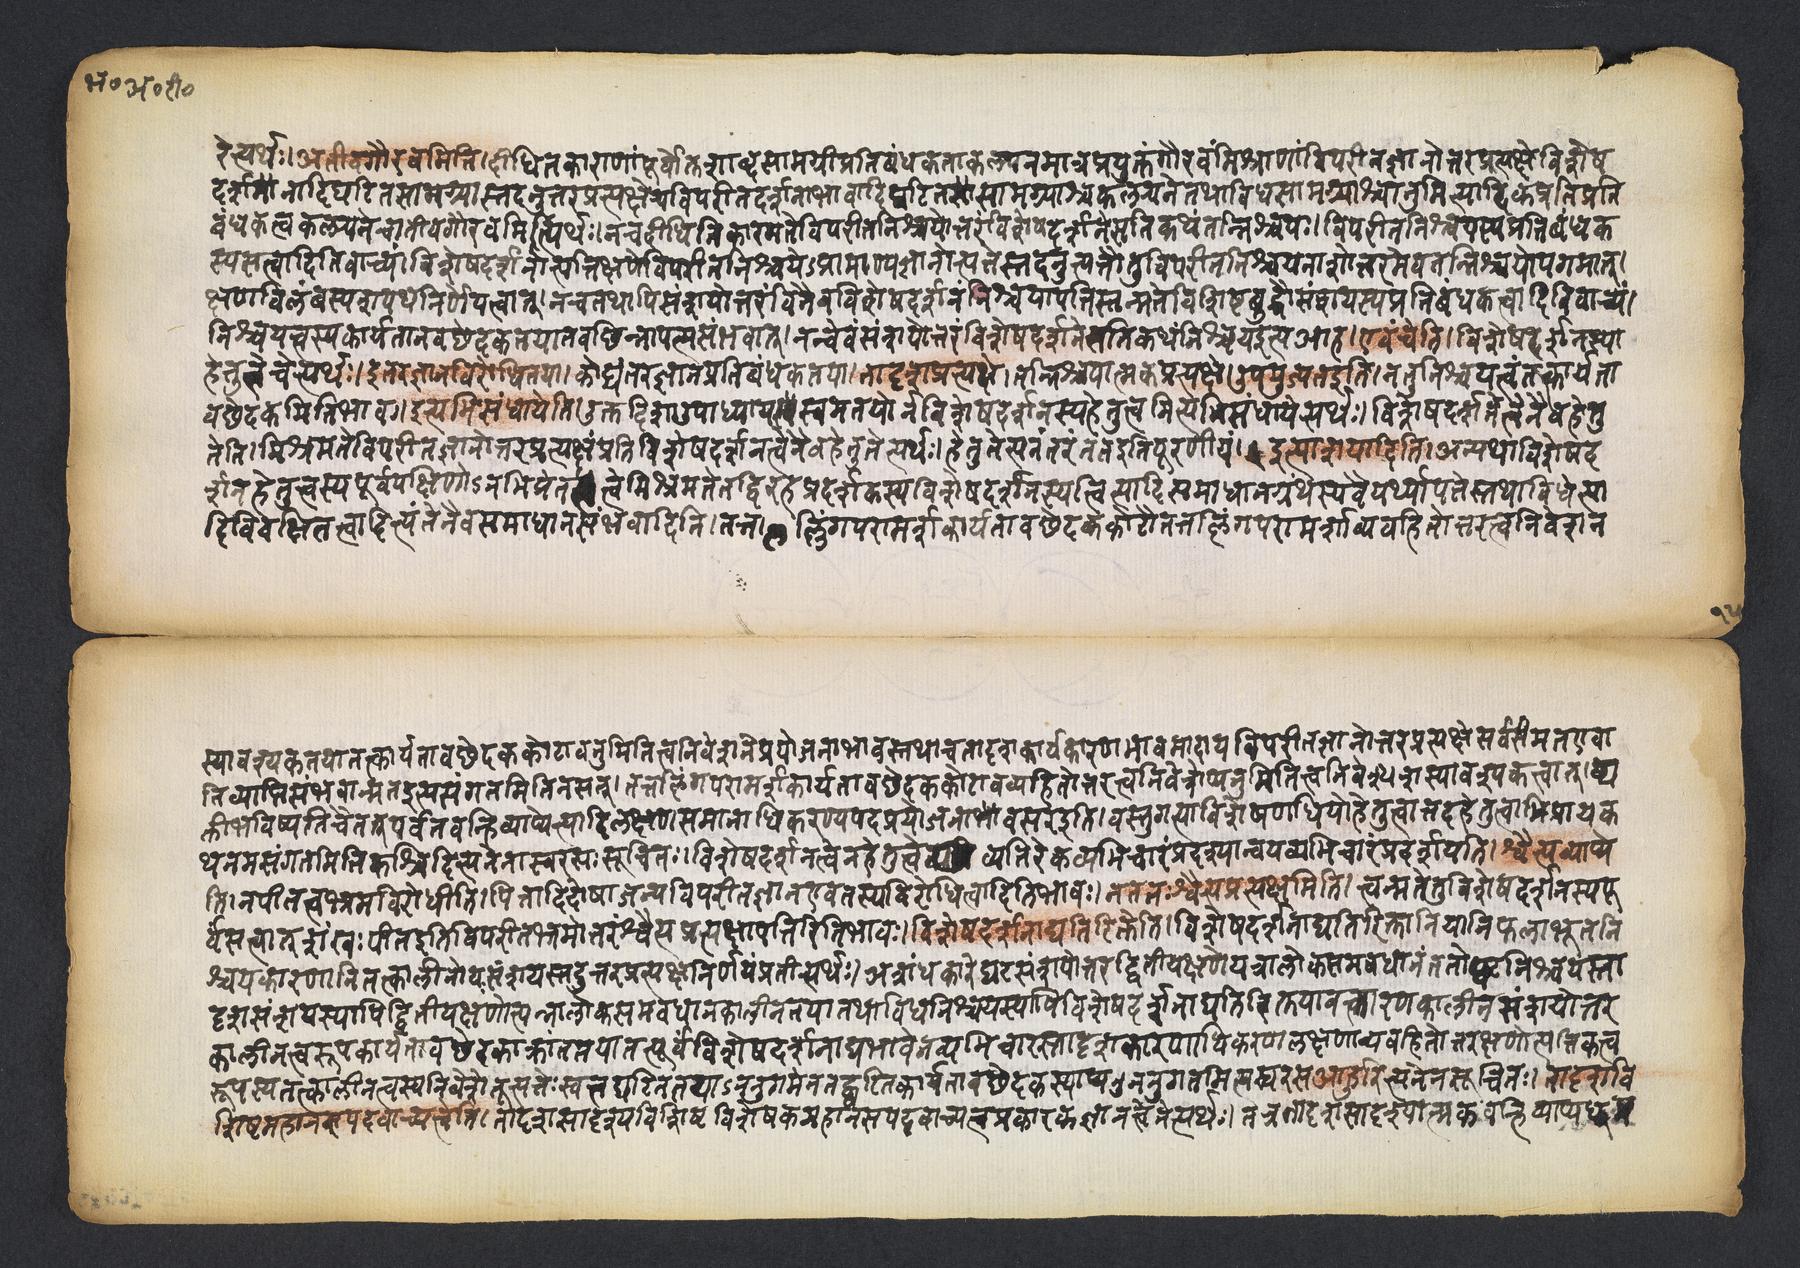 भ०अ०टी०
रेत्यर्थः। अतीवगौरवमिति। दीधितिकाराणां पूर्वोक्तशाब्दसामग्रीप्रतिबंधकताकल्पनमात्रप्रयुक्तं गौरवं मिश्राणां विपरीतज्ञानोत्तरप्रत्यक्षे विशेष
दर्शनादिघटितसामग्र्यास्तदनुत्तरप्रत्यक्षे च विपरीतदर्शनाभावादिघटितसामग्र्याश्च कल्पनेन तथाविधसामग्र्योश्चानुमित्यादिकं प्रति प्रति
बंधकत्वकल्पनेन चातीवगौरवमित्यर्थः। न च दीधितिकारमते विपरीतनिश्चयोत्तरं विशेषदर्शने सति कथं तन्निश्चयः। विपरीतनिश्चयस्य प्रतिबंधक
स्य सत्वादिति वाच्यं। विशेषदर्शनोत्पत्तिक्षणे विपरीतनिश्चयेऽप्रामाण्यज्ञानोत्पत्तेस्तदनुत्पत्तौ तु विपरीतनिश्चयनाशोत्तरमेव तन्निश्चयोपगमात्।
क्षणविलंबस्य शपथनिर्णेयत्वात्। न च तथापि संशयोत्तरं विनैव विशेषदर्शनं निश्चयापत्तिस्तन्मते विशिष्टबुद्धौ संशयस्य प्रतिबंधकत्वादिति वाच्यं।
निश्चयत्वस्य कार्यतानवछेदकतया तदवछिन्नापत्त्यसंभवात्। नन्वेवं संशयोत्तरं विशेषदर्शने सति कथं निश्चय इत्यत आह। एवंचेति। विशेषदर्शनस्या
हेतुत्वे चेत्यर्थः। इतरज्ञानविरोधितया। कोट्यंतरज्ञानप्रतिबंधकतया। तादृशप्रत्यक्षे। तन्निश्चयात्मकप्रत्यक्षे। उपयुज्यत इति। न तु निश्चयत्वं तत्कार्यता
वछेदकमिति भावः। इत्यभिसंधायेति। उक्तदिशा उपाध्यायस्वमतयोर्न विशेषदर्शनस्य हेतुत्वमित्यभिसंधायेत्यर्थः। विशेषदर्शनत्वेनैव हेतु
तेति। मिश्रमते विपरीतज्ञानोत्तरप्रत्यक्षं प्रति विशेषदर्शनत्वेनैव हेतुतेत्यर्थः। हेतुतेत्यनंतरं नत्विति पूरणीयं। इत्याशयादिति। अन्यथा विशेषद
र्शनहेतुत्वस्य पूर्वपक्षिणोऽनभिप्रेतत्वे मिश्रमतेन तद्विरहप्रदर्शकस्य विशेषदर्शनस्य त्वित्यादिसमाधानग्रंथस्य वैयर्थ्यापत्तेस्तथाविधेत्या
दिविवक्षितत्वादित्यंतेनैव समाधानसंभवादिति। तत्तल्लिंगपरामर्शकार्यतावछेदककोटौ तत्तल्लिंगपरामर्शाव्यवहितोत्तरत्वनिवेशन
१५
स्यावश्यकतया तत्कार्यतावछेदककोटावनुमितित्वनिवेशने प्रयोजनाभावस्तथाच तादृशकार्यकारणभावमादाय विपरीतज्ञानोत्तरप्रत्यक्षे सर्वसंमत एवा
तिव्याप्तिसंभवान्मत इत्यसंगतमिति न सत्। तत्तल्लिंगपरामर्शकार्यतावछेदककोटावव्यहितोत्तरत्वनिवेशेप्यनुमितित्वनिवेशस्यावश्यकत्वात्। व्य
क्तीभविष्यति चेतत् पर्वतवन्हिव्याप्येत्यादिलक्षणे समानाधिकरण्यपदप्रयोजनाभावसर इति। वस्तुगत्या विशेषणधियो हेतुत्वात्तदहेतुत्वाभिप्रायक
थनमसंगतमिति कश्चिदित्यनेनास्वरसः सूचितः। विशेषदर्शनत्वेन हेतुत्वे व्यतिरेकव्यभिचारं प्रदर्श्यान्वयव्यभिचारं प्रदर्शयति। श्वैत्यव्याप्ये
ति। न पीतत्वभ्रमविरोधीति। पित्तादिदोषाजन्यविपरीतज्ञान एव तस्य विरोधित्वादिति भावः। न ततः श्वैत्यप्रत्यक्षमिति। त्वन्मते तु विशेषदर्शनस्य पू
र्वं सत्वात् शंखः पीत इति विपरीतभ्रमोत्तरं श्वैत्यप्रत्यक्षापत्तिरिति भावः। विशेषदर्शनाद्यतिरिक्तेति। विशेषदर्शनाद्यतिरिक्तानि यानि फलीभूतनि
श्चयकारणानि तत्कालीनो यः संशयस्तदुत्तरप्रत्यक्षनिर्णयं प्रतीत्यर्थः। अत्रांधकारे घटसंशयोत्तरद्वितीयक्षणे यत्रालोकसमवधानं ततो घटनिश्चयस्ता
दृशसंशयस्यापि द्वितीयक्षणोत्पन्नालोकसमवधानकालीनतया तथाविधनिश्चयस्यापि विशेषदर्शनाद्यतिरिक्तयावत्कारणकालीनसंशयोत्तर
कालीनत्वरूपकार्यतावछेदकाक्रांततया तत्पूर्वं विशेषदर्शनाद्यभावेन व्यभिचारस्तादृशकारणाधिकरणलक्षणाव्यवहितोत्तरक्षणोत्पत्तिकत्व
रूपस्य तत्कालीनत्वस्य निवेशे तूत्पत्तेः स्वत्वघटिततयाऽननुगमेन तद्घटितकार्यतावछेदकस्याप्यननुगतमित्यस्वरस आहुरित्यनेन सूचितः। तादृशवि
शिष्टमहानसपदवाच्यत्वेति। तादृशसादृश्यविशिष्टविशेष्यकमहानसपदवाच्यत्वप्रकारकज्ञानत्वेनेत्यर्थः। तत्र तादृशसादृश्यात्मकवन्हिव्याप्यधूम